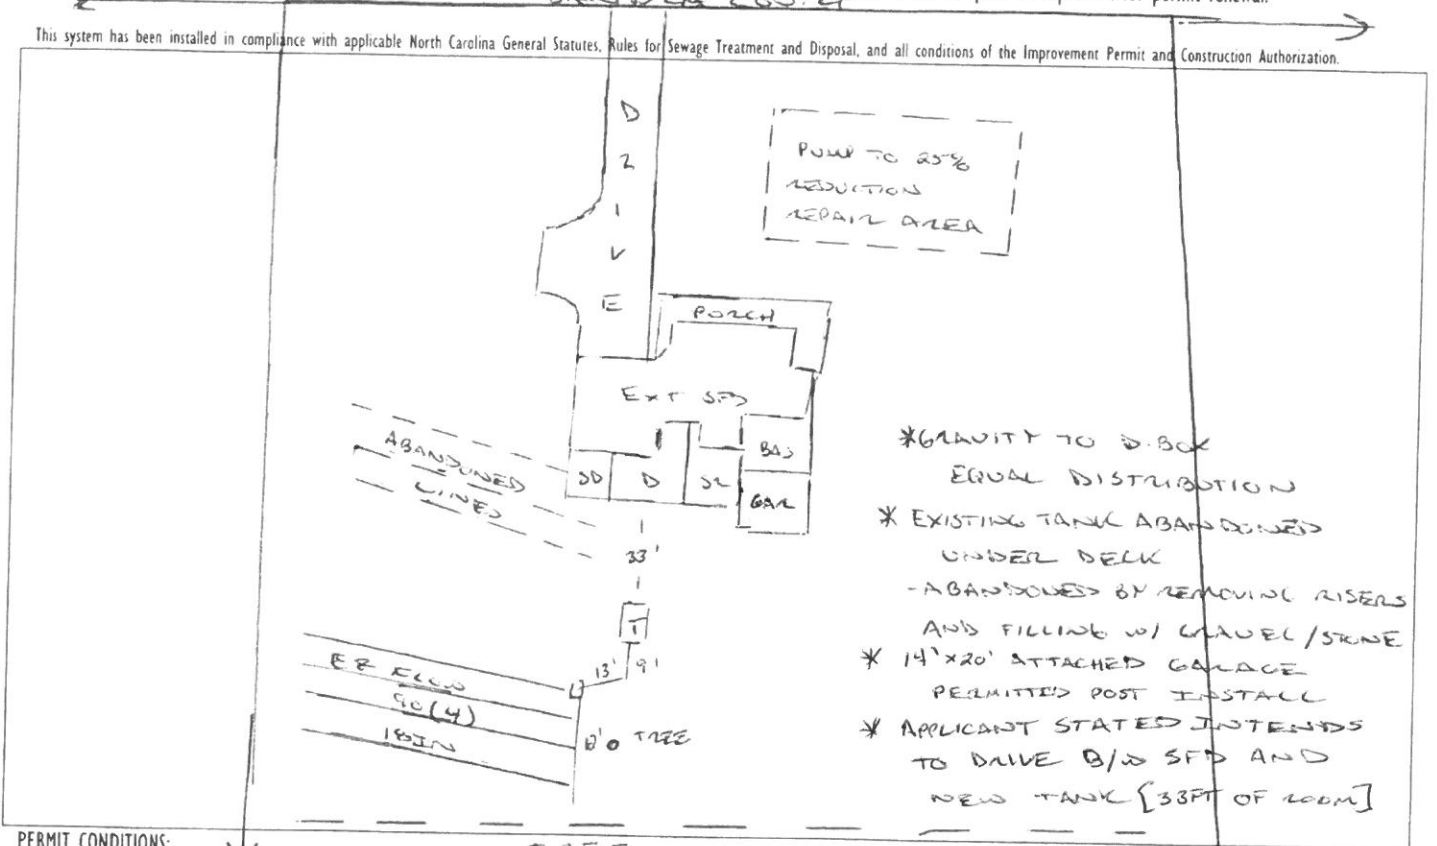 This system has been installed in compliance with applicable North Carolina General Statutes, Rules for Sewage Treatment and Disposal, and all conditions of the Improvement Permit and Construction Authorization.
D
R
I
V
E
PUMP TO 25%
REDUCTION
REPAIR AREA
PORCH
EXT SFD
ABANDONED
LINES
SD
D
SR
BAS
GAR
33'
T
13'
9'
EZ FLOW
90(4)
18IN
8'
TREE
*GRAVITY TO D-BOX
EQUAL DISTRIBUTION
* EXISTING TANK ABANDONED
UNDER DECK
-ABANDONED BY REMOVING RISERS
AND FILLING W/ GRAVEL/STONE
* 14'X20' ATTACHED GARAGE
PERMITTED POST INSTALL
* APPLICANT STATED INTENDS
TO DRIVE B/W SFD AND
NEW TANK [33FT OF ROOM]
PERMIT CONDITIONS: